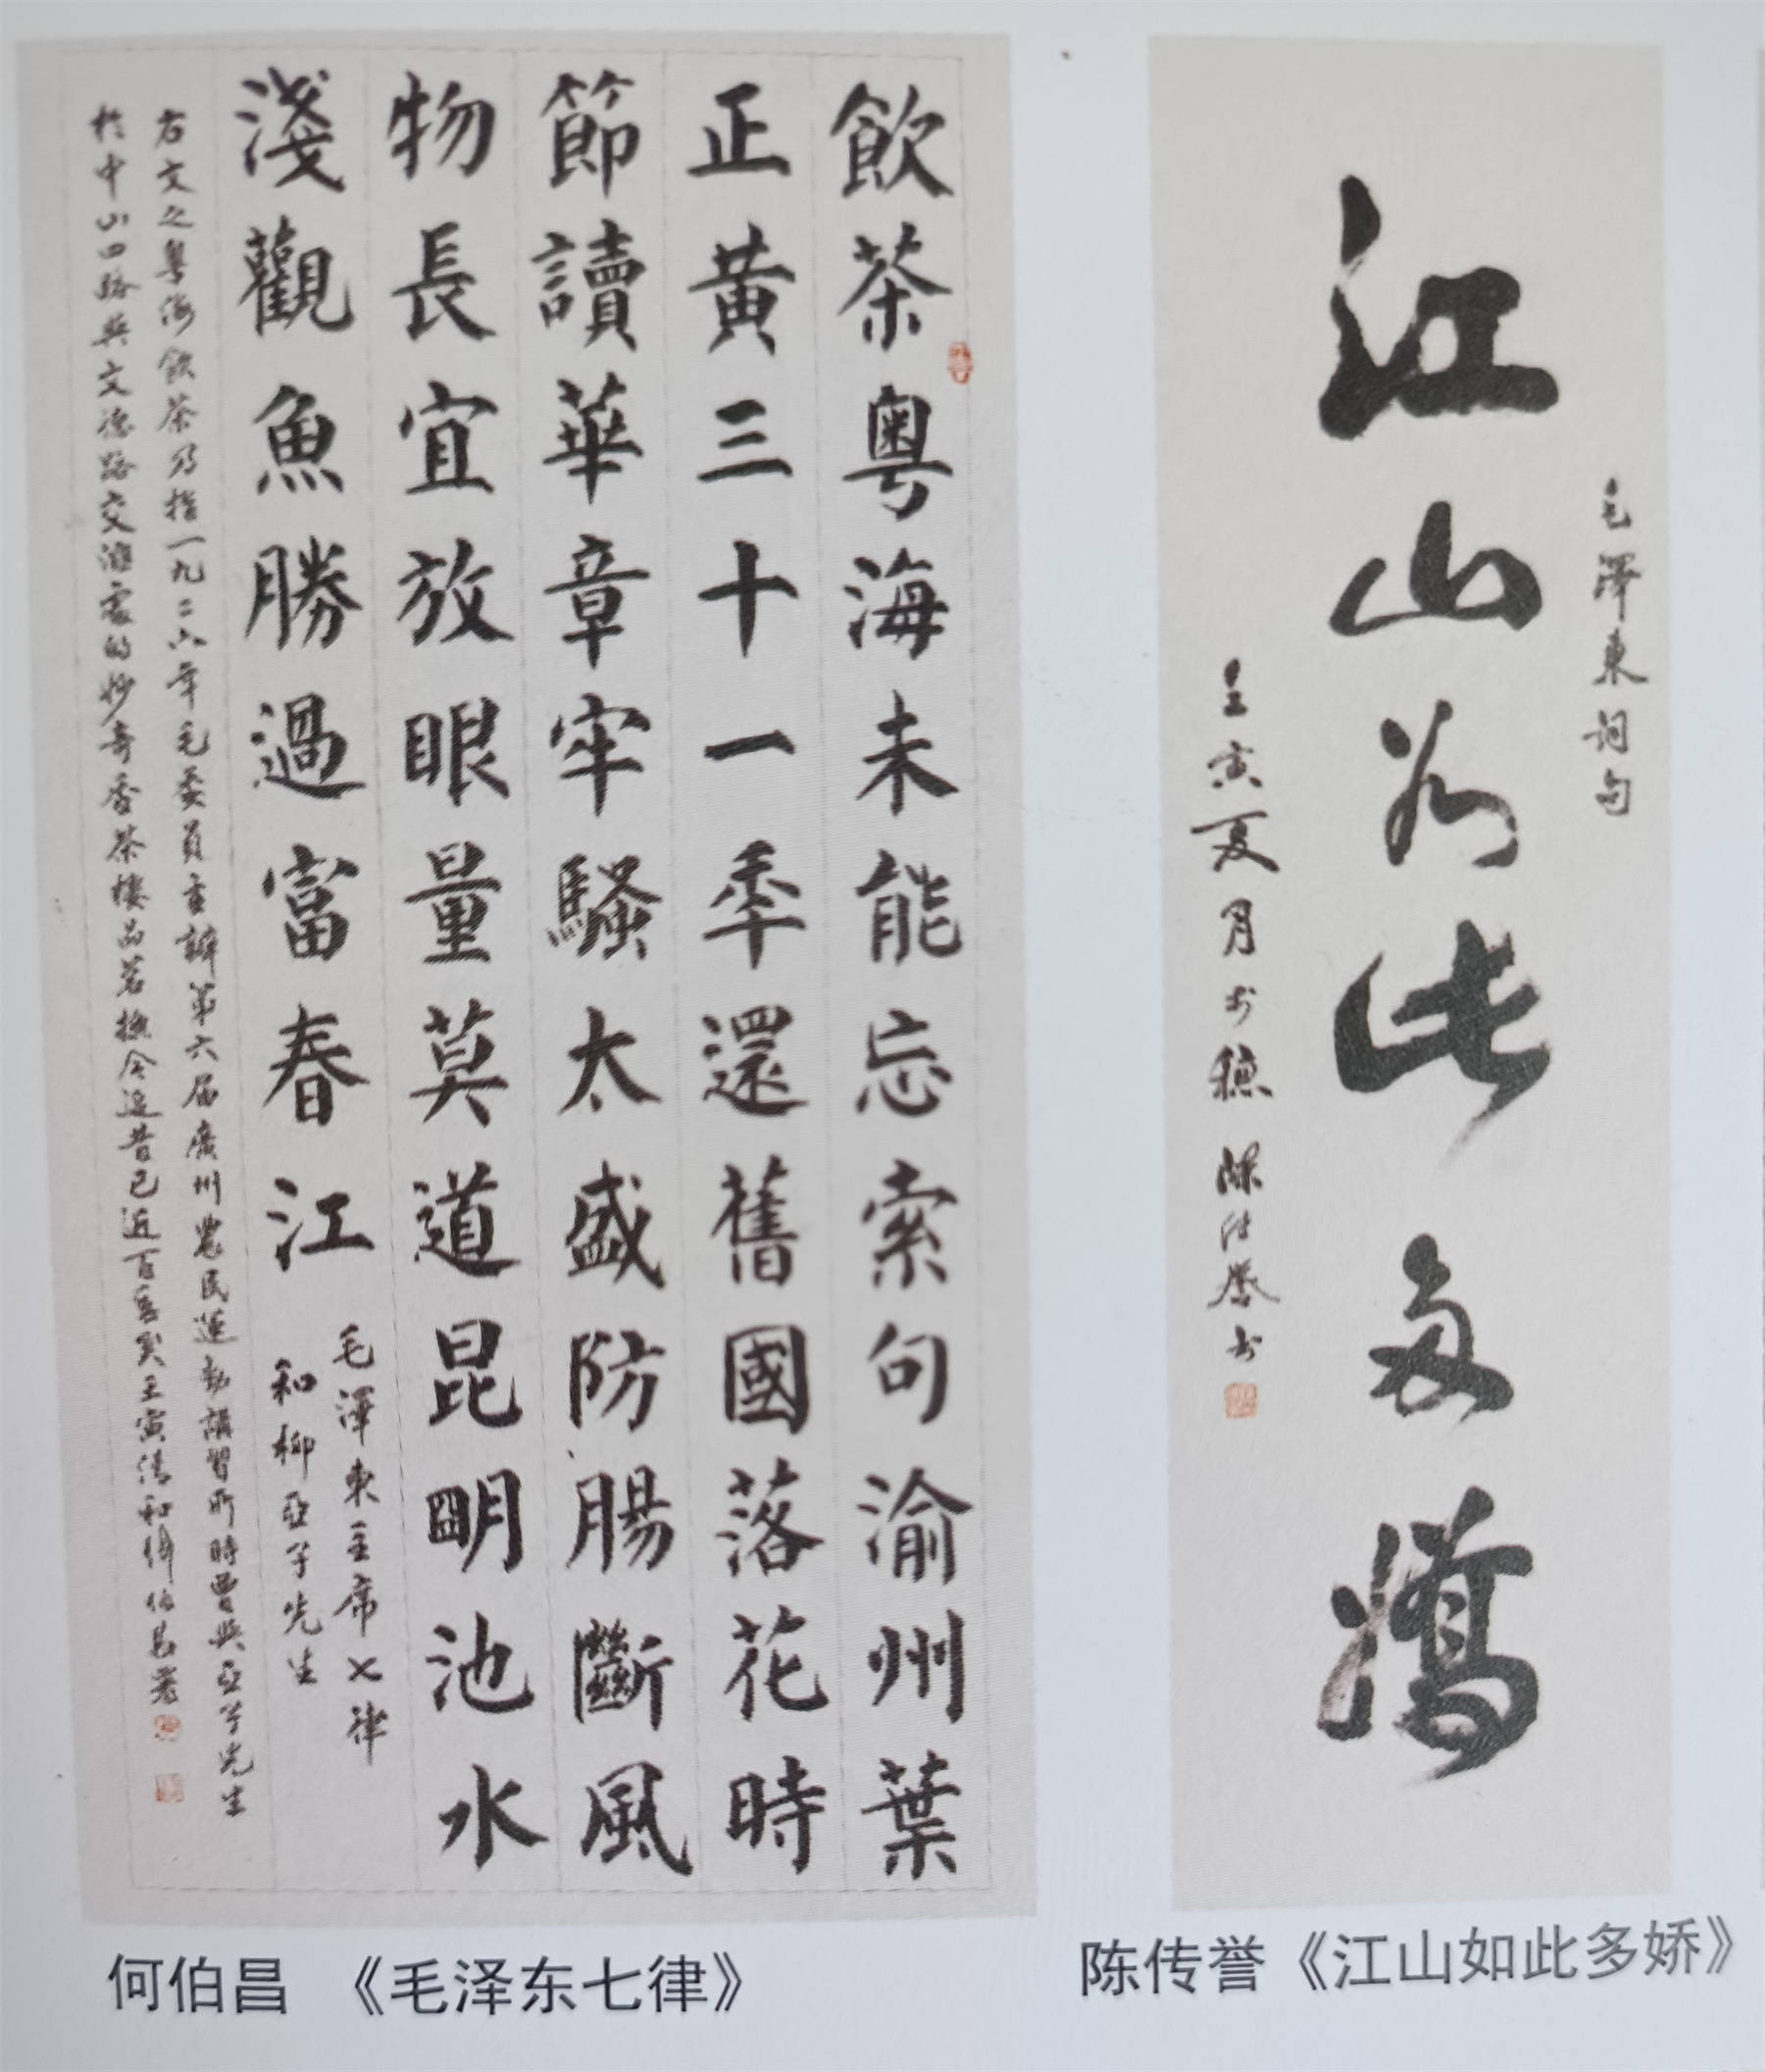 飲茶粵海未能忘索句渝州葉
正黃三十一秊還舊國落花時
節讀華章牢騷太盛防腸斷風
物長宜放眼量莫道昆明池水
淺觀魚勝過富春江
毛澤東主席七律
和柳亞子先生
右文之粵海飲茶乃指一九二六年毛委員主辦第六届廣州農民運動講習所時曾與亞子先生
於中山四路與文德路交滙處的妙奇香茶樓品茗撫今追昔已近百年矣壬寅清和何伯昌署
毛澤東词句
江山如此多嬌
壬寅夏月於穗 陳传誉书
何伯昌 《毛泽东七律》
陈传誉《江山如此多娇》